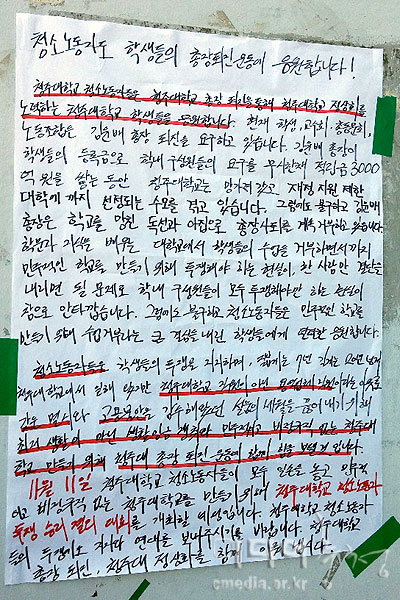 청소노동자도 학생들의 총장퇴진운동에 응원합니다!
청주대학교 청소노동자들은 청주대학교 총장 퇴진을 통해 청주대학교 정상화를
노력하는 청주대학교 학생들을 응원합니다. 현재 학생, 교수회, 총동문회,
노동조합은 김윤배 총장 퇴진을 요구하고 있습니다. 김윤배 총장이
학생들의 등록금으로 학내 구성원들의 요구를 무시한채 적립금 3000
억 원을 쌓는 동안 청주대학교는 망가져 갔고 재정 지원 제한
대학에 까지 선정되는 수모를 겪고 있습니다. 그럼에도 불구하고 김윤배
총장은 학교를 망친 독선과 아집으로 총장사퇴를 계속 거부하고 있습니다
학문과 지성을 배우는 대학교에서 학생들이 수업을 거부하면서까지
민주적인 학교를 만들기 위해 투쟁해야 하는 현실이 한 사람만 결단을
내리면 될 문제로 학내 구성원들이 모두 투쟁해야만 하는 현실이
참으로 안타깝습니다. 그럼에도 불구하고 청소노동자들은 민주적인 학교를
만들기 위해 수업거부라는 큰 결심을 내린 학생들에게 연대와 응원합니다.
청소노동자들은 학생들의 투쟁을 지지하며, 짧게는 7년 길게는 20년 넘게
청주대학교에서 일해 왔지만 청주대학교 직원이 아닌 용역업체 직원이라는 이유로
최저 생활이 아닌 생활임금 쟁취와 민주적이고 비민주적 없는 청주대
학교 만들기 위해 청주대 총장 퇴진 운동에 함께 힘을 보탤 것입니다.
11월 11일 청주대학교 청소노동자들이 모두 일손을 놓고 민주적
이고 없는 청주대학교를 만들기 위해 청주대학교 청소노동자
투쟁 승리 결의 대회를 개최할 예정입니다. 청주대학교 청소노동자
들의 투쟁에도 지지와 연대를 보내주시기를 바랍니다. 청주대학교
총장 퇴진, 청주대 정상화를 함께
cmedia.or.kr